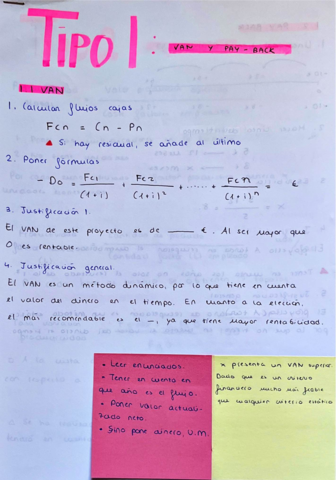 TIPO 1: VAN Y PAY-BACK
1.1 VAN
1. Calcular flujos cajas
Fcn = Cn - Pn
▲ Si hay residual, se añade al último
2. Poner fórmulas
- Do + Fc1/(1+i) + Fc2/(1+i)² + ...... + Fcn/(1+i)ⁿ = €
3. Justificación 1.
El VAN de este proyecto es de ___ €. Al ser mayor que
0 es rentable.
4. Justificación general.
El VAN es un método dinámico, por lo que tiene en cuenta
el valor del dinero en el tiempo. En cuanto a la elección,
el más recomendable es el —, ya que tiene mayor rentabilidad.
• Leer enunciados.
• Tener en cuenta en
que año es el flujo.
• Poner valor actuali-
zado neto.
• Sino pone dinero, U.M.
x presenta un VAN superior.
Dado que es un criterio
financiero mucho más fiable
que cualquier criterio estático